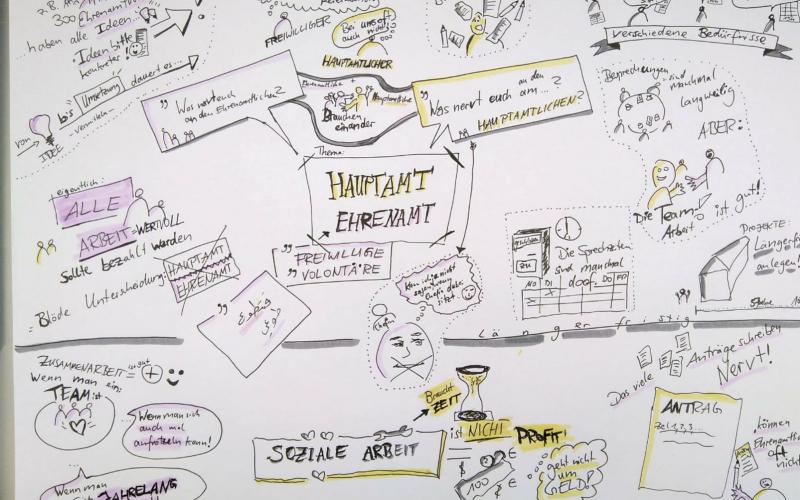 z.B.
300 Ehrenamt
haben alle Ideen...
Ideen bitte
konkreter!
von
IDEE
bis
Umsetzung
dauert es...
FREIWILLIGER
Bei uns oft
auch
HAUPTAMTLICHER
verschiedene Bedürfnisse
"Was nervt euch
an den Ehrenamtlichen?
Ehrenamtliche +
Hauptamtliche
Brauchen
einander
"Was nervt euch an den
am ... ?
HAUPTAMTLICHEN?
Besprechungen sind
manchmal
langweilig
ABER:
Die Team-
Arbeit ist gut!
Thema:
HAUPTAMT
EHRENAMT
" FREIWILLIGE
" VOLONTÄRE
eigentlich:
ALLE
ARBEIT = WERTVOLL
Sollte bezahlt werden
= Blöde Unterscheidung:
HAUPTAMT
EHRENAMT
Chefin
MO DI DO FR
ZU
Die Sprechzeiten
sind manchmal
doof.
PROJEKTE:
Längerfri
anlegen!
Längerfristig
ZUSAMMENARBEIT ist gut
Wenn man ein
TEAM ist
Wenn man sich
auch mal
aufregen kann!
Wenn man
JAHRELANG
Braucht
ZEIT
ist NICHT PROFIT!
SOZIALE ARBEIT
$ €
100 €
geht nicht
um
GELD?
Das viele
Anträge schreiben
Nervt!
ANTRAG
Zeile 1, 2, 3...
können
Ehrenamtl
oft
nicht